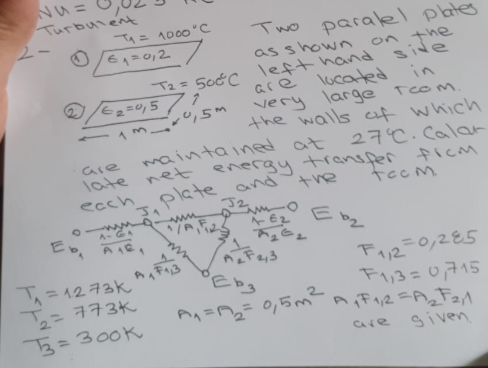 Nu = 0,023
Turbulent
2-
① T1 = 1000°C
ε1 = 0,2
T2 = 500°C
② ε2 = 0,5
0,5m
1 m
Two paralel plates
as shown on the
left hand side
are lucated in
very large room.
the walls of which
are maintained at 27°C. Calcu
late net energy transfer from
each plate and the room
J1
J2
Eb1
1-ε1/A1ε1
1/A1F1,2
1-ε2/A2ε2
Eb2
1/A1F1,3
1/A2F2,3
Eb3
F1,2 = 0,285
F1,3 = 0,715
T1 = 1273K
T2 = 773K
T3 = 300K
A1 = A2 = 0,5m²
A1F1,2 = A2F2,1
are given